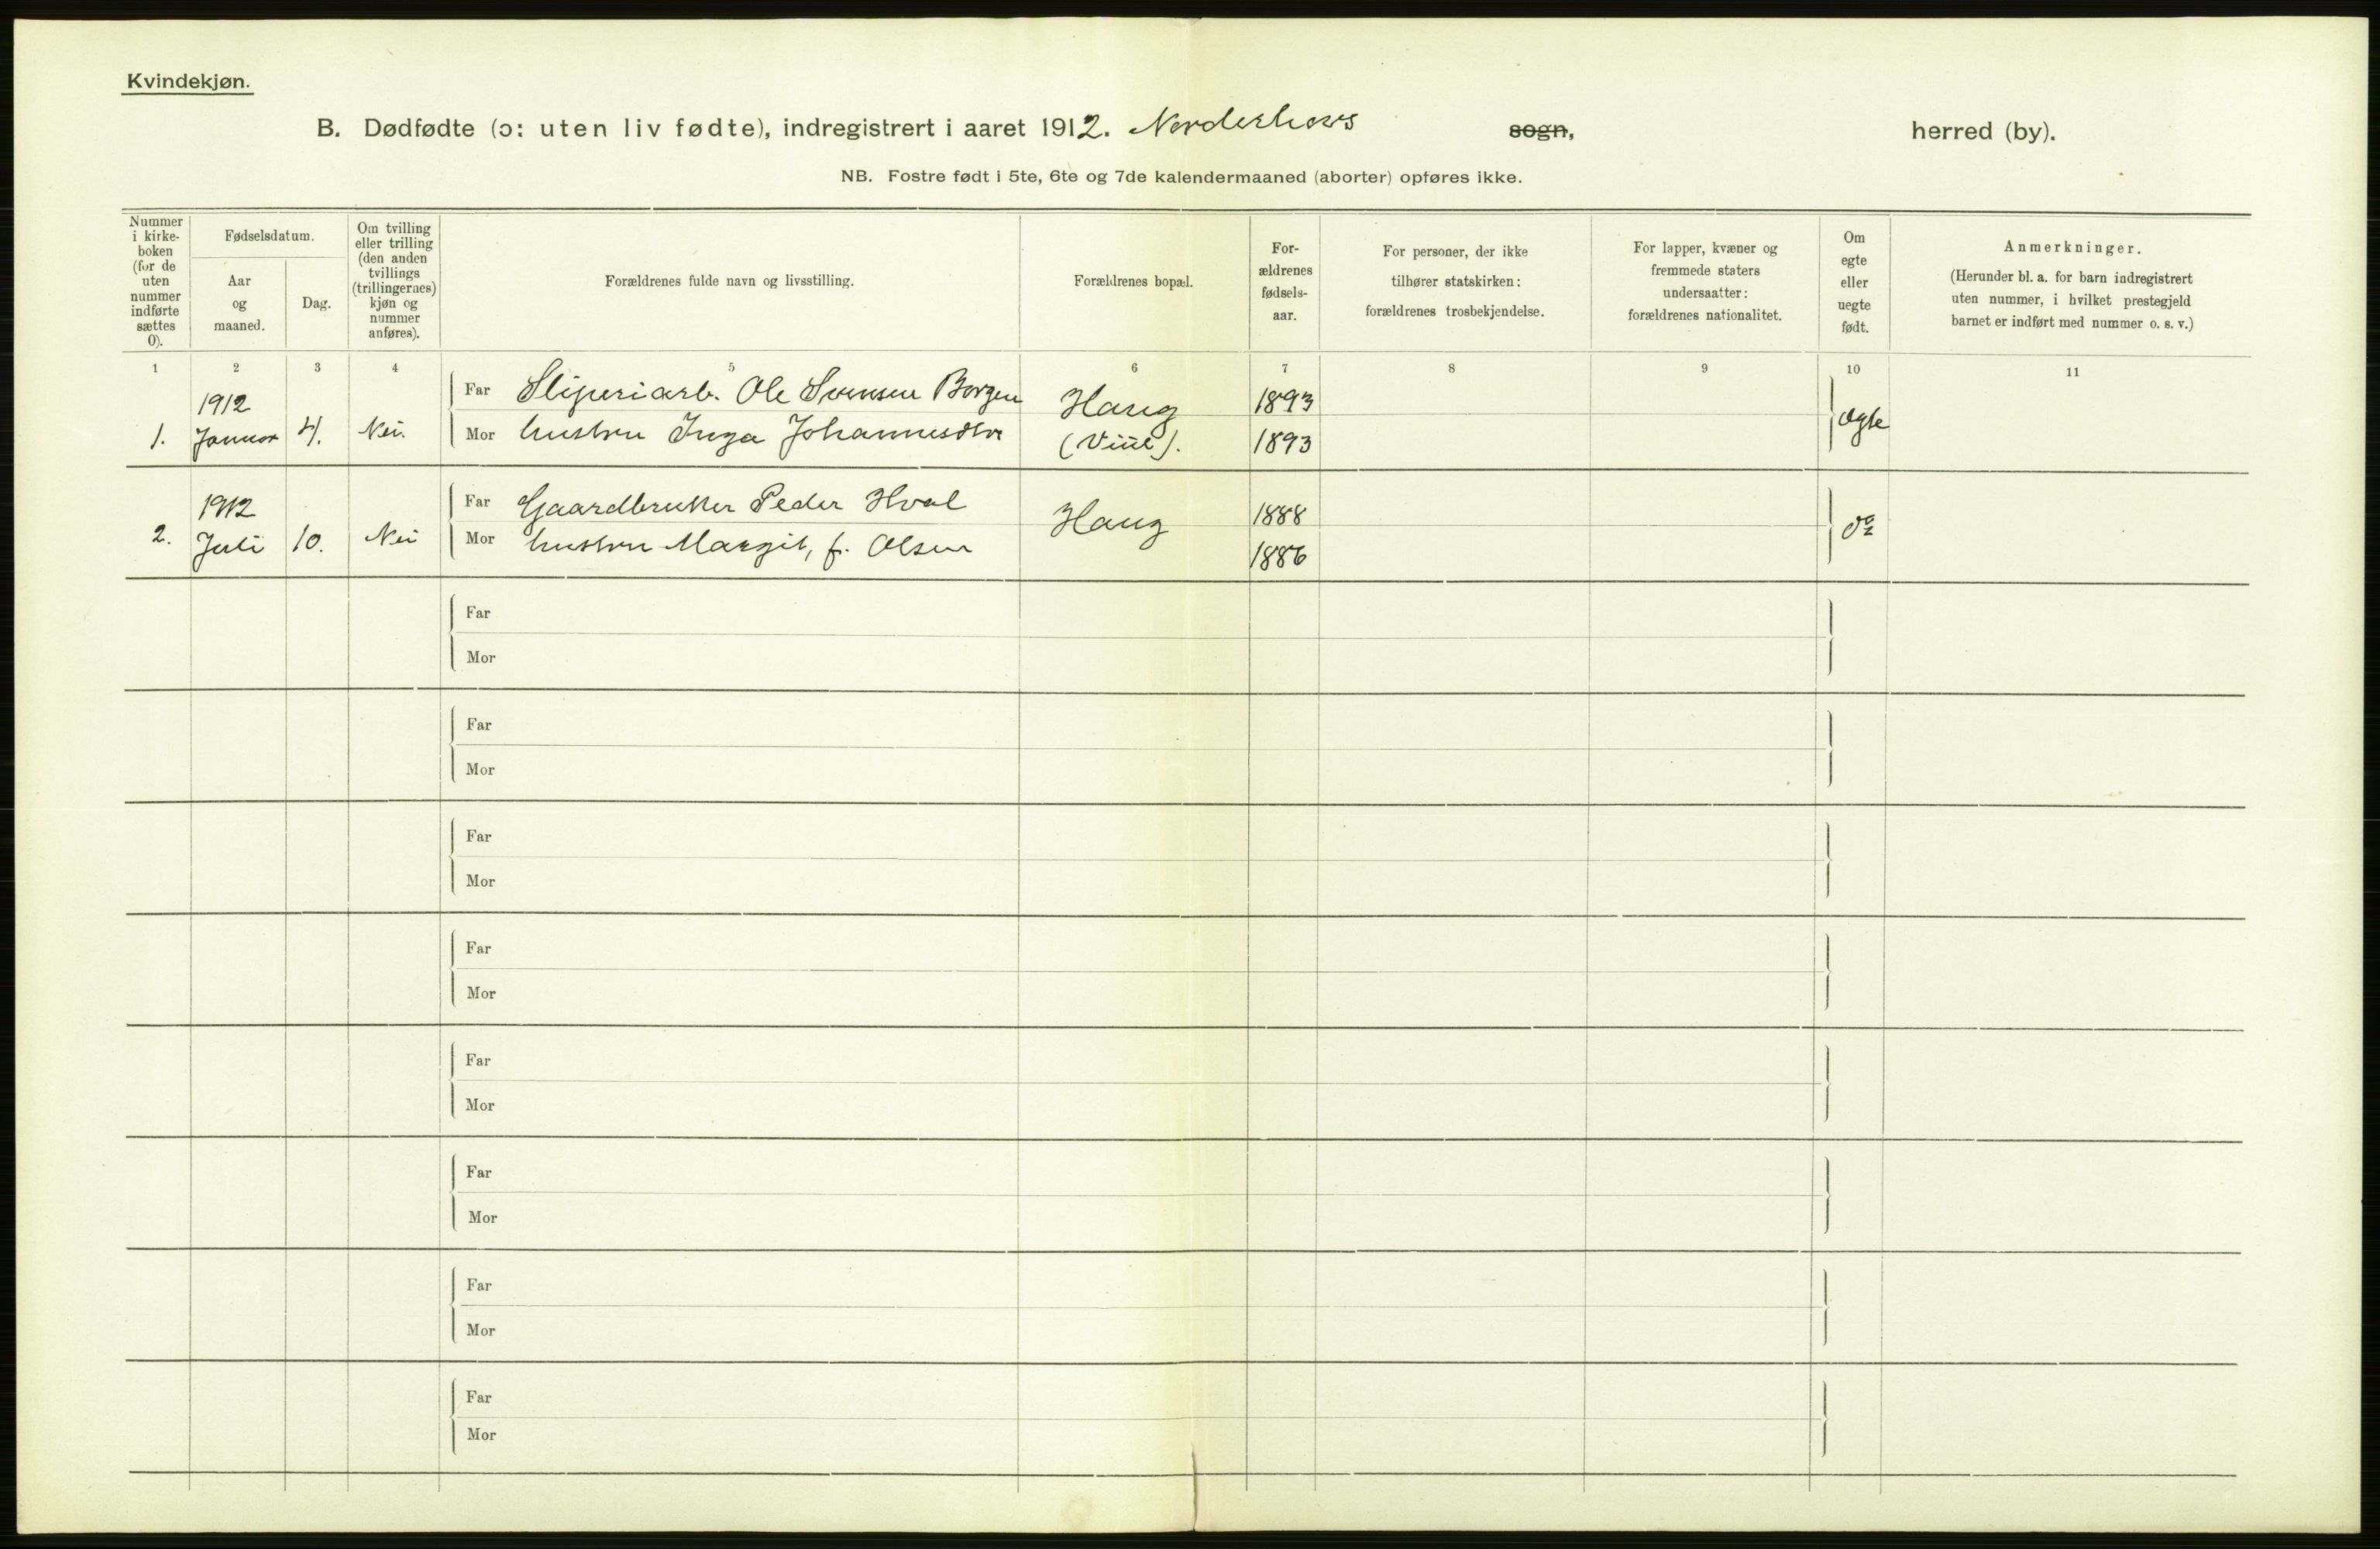 Kvindekjøn.
B. Dødfødte (ɔ: uten liv fødte), indregistrert i aaret 1912. Norderhovs sogn, herred (by).
NB. Fostre født i 5te, 6te og 7de kalendermaaned (aborter) opføres ikke.
Nummer
i kirke-
boken
(for de
uten
nummer
indførte
sættes
0).
Fødselsdatum.
Aar
og
maaned.
Dag.
Om tvilling
eller trilling
(den anden
tvillings
(trillingernes)
kjøn og
nummer
anføres).
Forældrenes fulde navn og livsstilling.
Forældrenes bopæl.
For-
ældrenes
fødsels-
aar.
For personer, der ikke
tilhører statskirken:
forældrenes trosbekjendelse.
For lapper, kvæner og
fremmede staters
undersaatter:
forældrenes nationalitet.
Om
egte
eller
uegte
født.
Anmerkninger.
(Herunder bl. a. for barn indregistrert
uten nummer, i hvilket prestegjeld
barnet er indført med nummer o. s. v.)
1 2 3 4 5 6 7 8 9 10 11
1912 Far Sliperiarb. Ole Svensen Borgen Haug 1893
1. Januar 4. Nei. Mor hustru Inga Johannesdtr 1893 egte
1912 Far Gaardbruker Peder Hval Haug 1888
2. Juli 10. Nei Mor hustru Margit, f. Olsen 1886 do
Far
Mor
Far
Mor
Far
Mor
Far
Mor
Far
Mor
Far
Mor
Far
Mor
Far
Mor